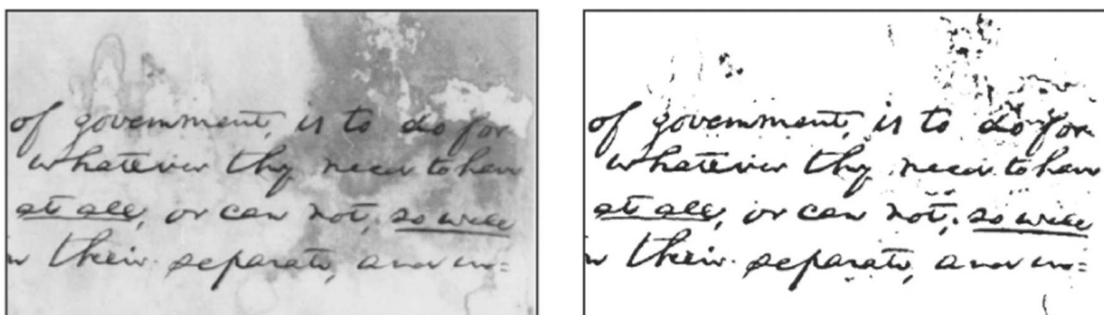 of government, is to do for
whatever they need to have
at all, or can not, so well
n their separate, and in=
of government, is to do for
whatever they need to have
at all, or can not, so well
n their separate, and in=